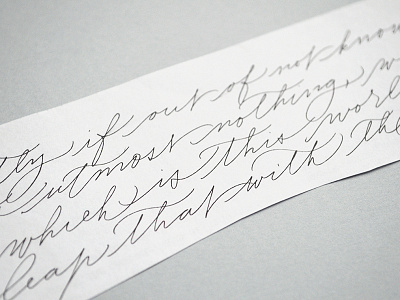 tly if out of not know
utmost nothing, w
which is this worl
leap that with the